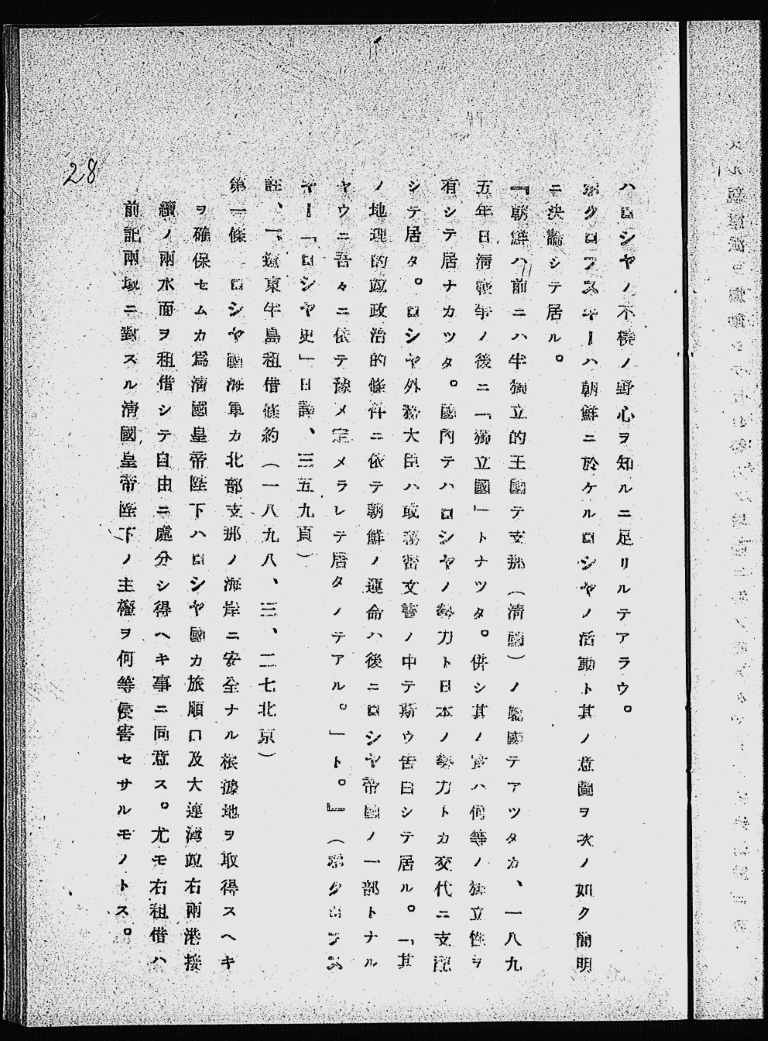 28
ハロシヤノ不穫ノ野心ヲ知ルニ足リルテアラウ。
クロフスキーハ朝鮮ニ於ケルロシヤノ活動ト其ノ意圖ヲ次ノ如ク簡明
ニ決論シテ居ル。
『朝鮮ハ前ニハ半獨立的王國テ支那(清國)ノ國テアツタカ、一八九
五年日清戰爭ノ後ニ「獨立國」トナツタ。併シ其ノ實ハ何等ノ獨立性ヲ
有シテ居ナカツタ。國內テハロシヤノ勢力ト日本ノ勢力トカ交代ニ支配
シテ居タ。ロシヤ外務大臣ハ或祕密文書ノ中テ斯ウ告白シテ居ル。「其
ノ地理的竝政治的條件ニ依テ朝鮮ノ運命ハ後ニロシヤ帝國ノ一部トナル
ヤウニ吾々ニ依テ豫メ定メラレテ居タノテアル。」ト。』(クロフス
キー「ロシヤ史」日譯、三五九頁)
註、一、遼東半島租借條約(一八九八、三、二七北京)
第一條 ロシヤ國海軍カ北部支那ノ海岸ニ安全ナル根源地ヲ取得スヘキ
ヲ確保セムカ爲清國皇帝陛下ハロシヤ國カ旅順口及大連灣竝右兩港接
續ノ兩水面ヲ租借シテ自由ニ處分シ得ヘキ事ニ同意ス。尤モ右租借ハ
前記兩域ニ對スル清國皇帝陛下ノ主權ヲ何等侵害セサルモノトス。